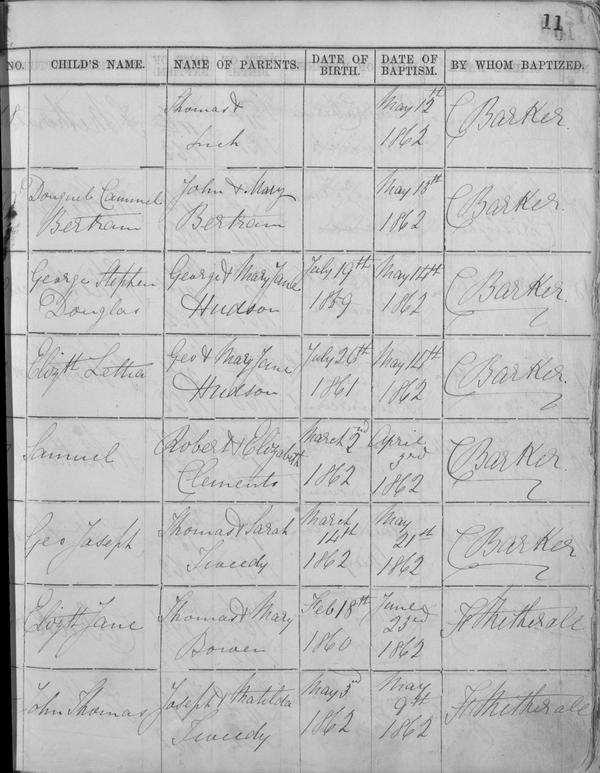 11
NO. CHILD'S NAME. NAME OF PARENTS. DATE OF BIRTH. DATE OF BAPTISM. BY WHOM BAPTIZED.
Thomas & May 12th C Barker
1862
John & Mary May 13th C Barker
Bertram Bertram 1862
George Stephen George & Mary Jane July 19th May 14th C Barker
Douglas Hudson 1859 1862
Elizth Letha Geo & Mary Jane July 26th May 14th C Barker
Hudson 1861 1862
Samuel Robert & Elizabeth March 2nd April 3rd C Barker
Clements 1862 1862
Geo Joseph Thomas & Sarah March 14th May 21st C Barker
Tweedy 1862 1862
Elizth Jane Thomas & Mary Feb 18th June 23rd
Bowen 1860 1862
John Thomas Joseph & Matilda May 3rd May 9th
Tweedy 1862 1862